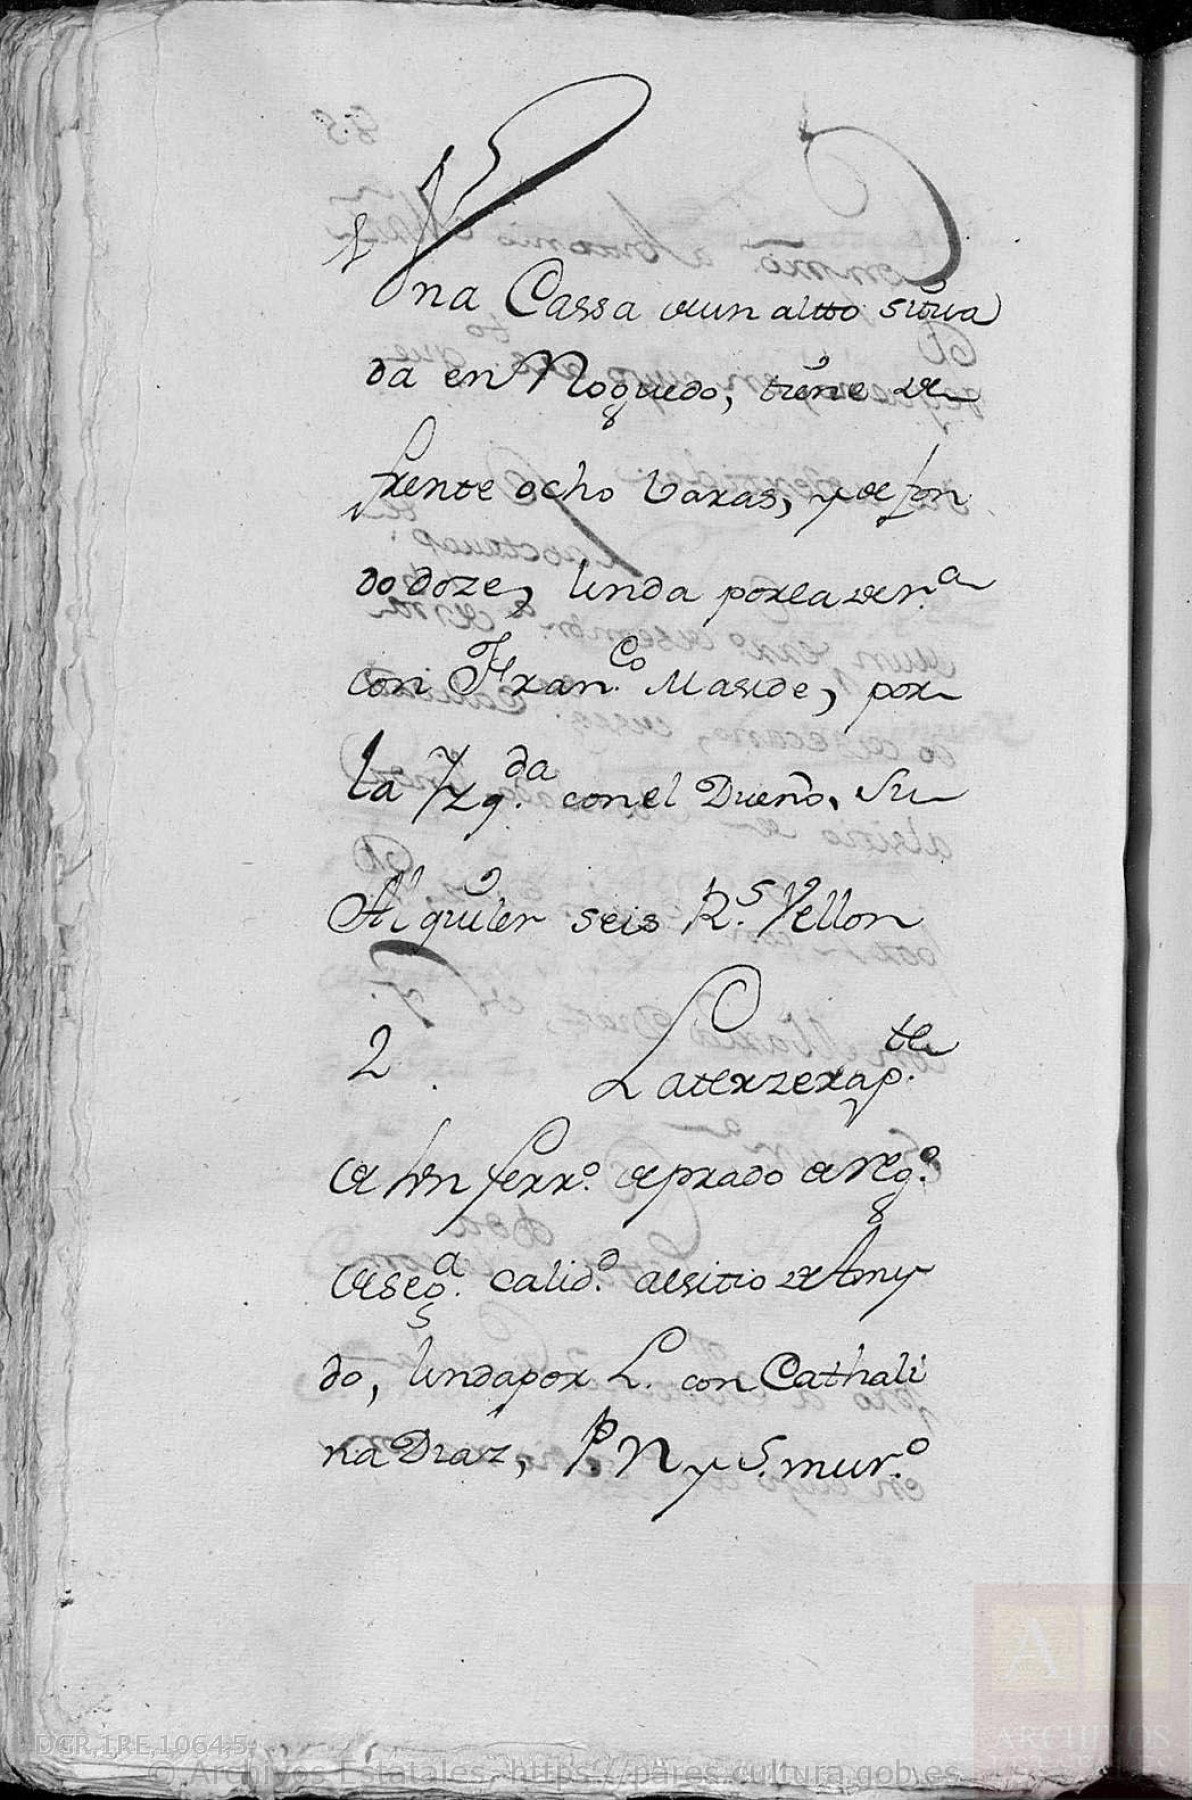 1
Una Cassa de un altto situa
da en Noguedo, tiene de
frente ocho baras, y de fon
do doze, linda por la der.ª
con Fran.co Maside, por
la Yzq.da con el Dueño, Su
Alquiler seis R.s Vellon
2 La terzera p.te
de Vn ferr.º de prado de reg.º
de seg.ª calid.d al sitio de Amy
do, linda por L. con Cathali
na Diaz, P. N y S. mur.º
DGR,1RE,10645
© Archivos Estatales, https://pares.cultura.gob.es
AE
ARCHIVOS
ESTATALES